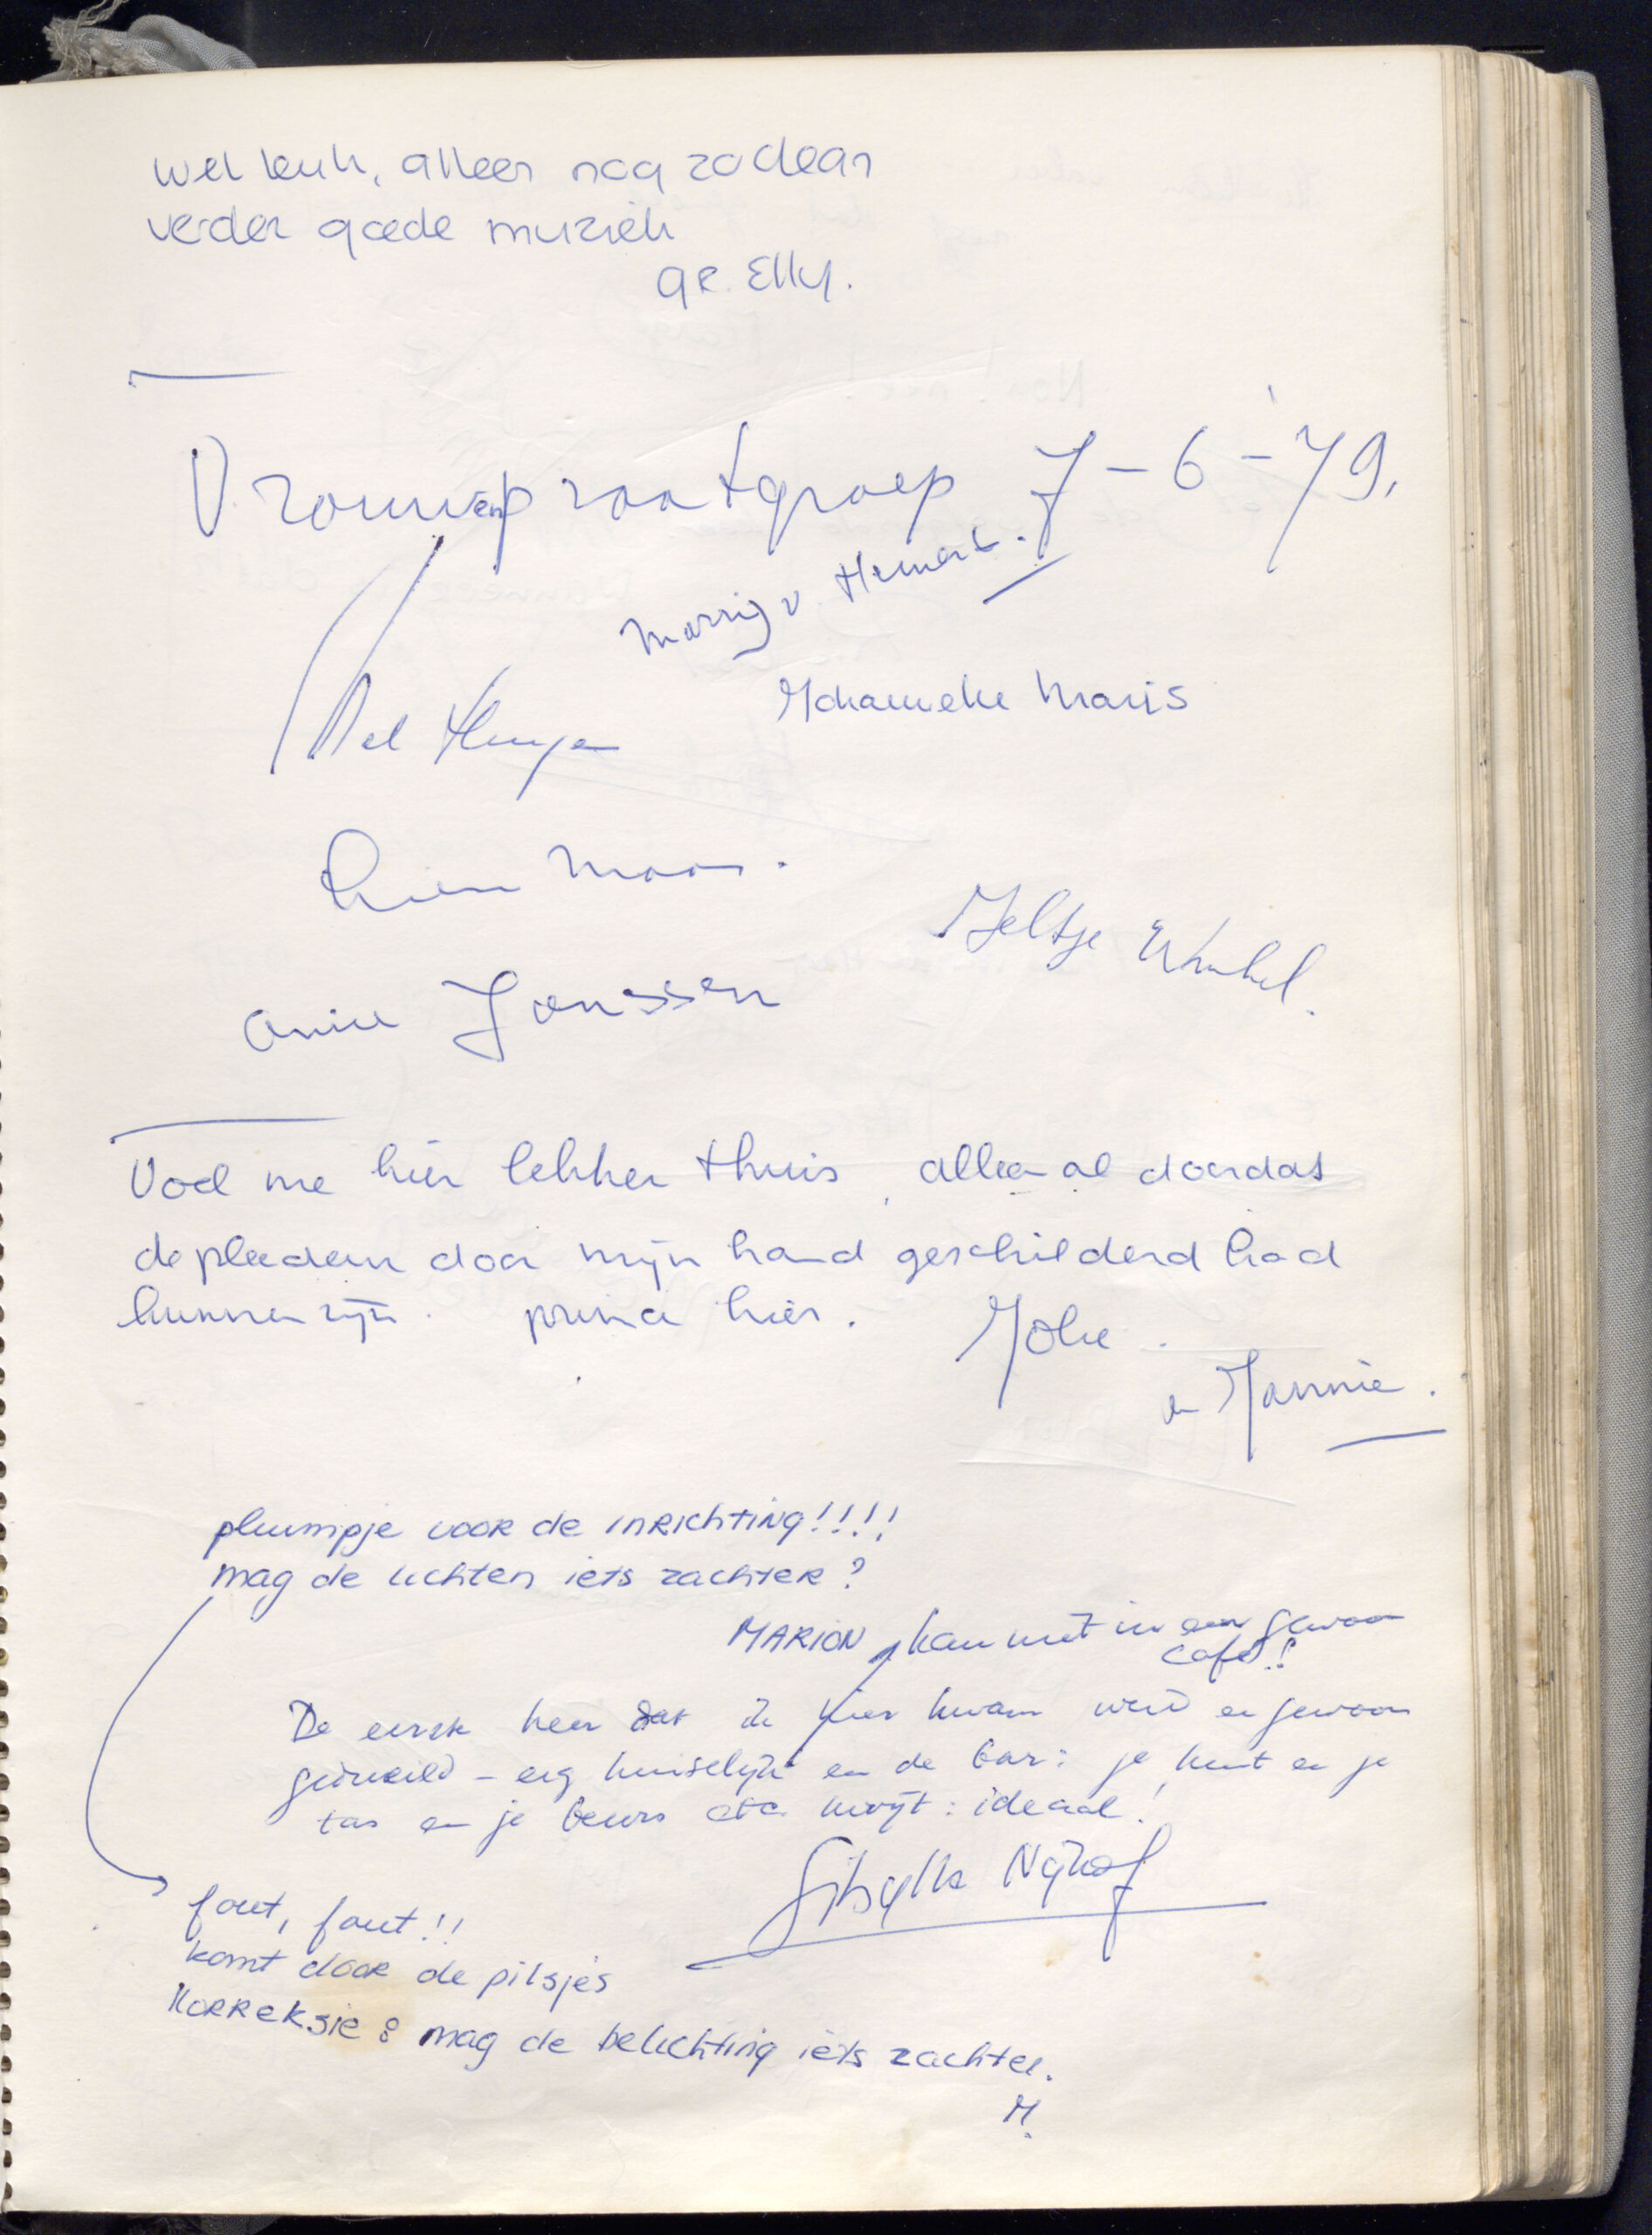 wel leuk, alleen nog zo clean
verder goede muziek
gr. Elly.
Vrouwenpraatgroep 7-6-'79.
Marrig v. Hemert.
Nel
Johanneke Maris
Lien Maas.
Jeltje Winkel.
Annie Janssen
Voel me hier lekker thuis, alleen al doordat
de pleedeur door mijn hand geschilderd had
kunnen zijn. prima hier. Joke.
en Jannie.
pluimpje voor de inrichting!!!!
mag de lichten iets zachter?
MARION kan niet in een gewoon
café!!
De eerste keer dat ik hier kwam werd er gewoon
gebreid - erg huiselijk en de bar: je kunt er je
tas en je beurs etc. kwijt: ideaal!
Sibylla Nijhof
fout, fout!!
komt door de pilsjes
Korreksie: mag de belichting iets zachter.
M.